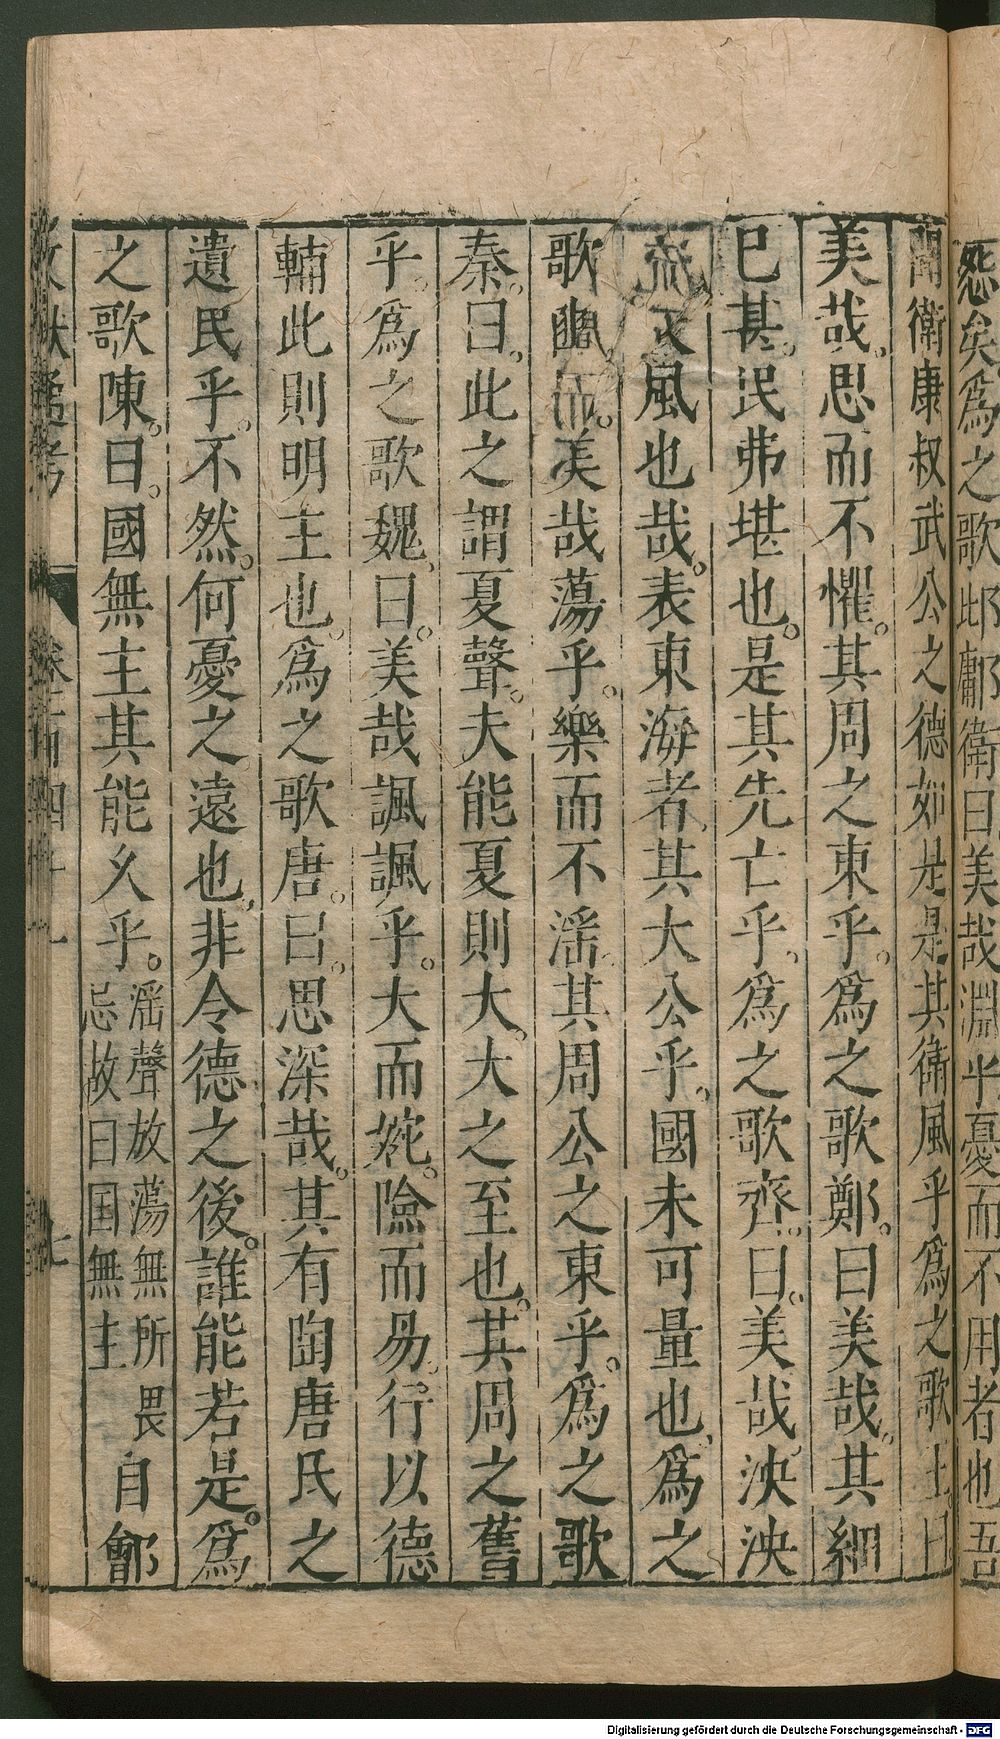 怨矣爲之歌邶鄘衛曰美哉淵乎憂而不用者也吾
聞衛康叔武公之德如是是其衛風乎爲之歌王曰
美哉思而不懼其周之東乎爲之歌鄭曰美哉其細
已甚民弗堪也是其先亡乎爲之歌齊曰美哉泱泱
風也哉表東海者其大公乎國未可量也爲之
歌豳美哉蕩乎樂而不淫其周公之東乎爲之歌
秦曰此之謂夏聲夫能夏則大大之至也其周之舊
乎爲之歌魏曰美哉渢渢乎大而婉險而易行以德
輔此則明主也爲之歌唐曰思深哉其有陶唐氏之
遺民乎不然何憂之遠也非令德之後誰能若是爲
之歌陳曰國無主其能久乎
淫聲放蕩無所畏
忌故曰国無主
自鄶
文獻通考 卷一百四十一 七
Digitalisierung gefördert durch die Deutsche Forschungsgemeinschaft - DFG